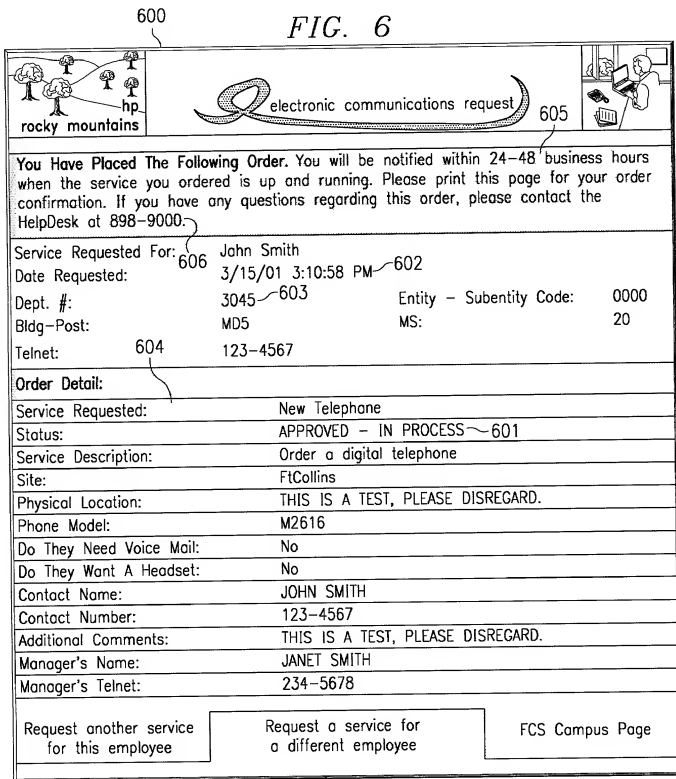 600
FIG. 6
hp
rocky mountains
electronic communications request
605
You Have Placed The Following Order. You will be notified within 24-48 business hours
when the service you ordered is up and running. Please print this page for your order
confirmation. If you have any questions regarding this order, please contact the
HelpDesk at 898-9000.
606
Service Requested For: John Smith
Date Requested: 3/15/01 3:10:58 PM 602
Dept. #: 3045 603 Entity - Subentity Code: 0000
Bldg-Post: MD5 MS: 20
Telnet: 123-4567
604
Order Detail:
Service Requested: New Telephone
Status: APPROVED - IN PROCESS 601
Service Description: Order a digital telephone
Site: FtCollins
Physical Location: THIS IS A TEST, PLEASE DISREGARD.
Phone Model: M2616
Do They Need Voice Mail: No
Do They Want A Headset: No
Contact Name: JOHN SMITH
Contact Number: 123-4567
Additional Comments: THIS IS A TEST, PLEASE DISREGARD.
Manager's Name: JANET SMITH
Manager's Telnet: 234-5678
Request another service
for this employee
Request a service for
a different employee
FCS Campus Page